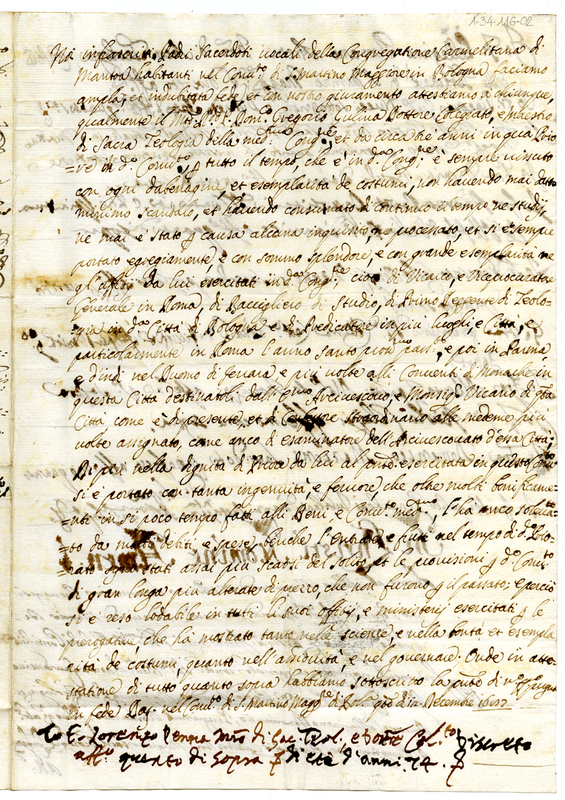 1-34-116-02
Noi infrascritti Padri Sacerdoti vocali della Congregatione Carmelitana di
Mantoa habitanti nel Conv.to di S. Martino Maggiore in Bologna facciamo
ampla, et indubitata fede, et con nostro giuramento attestiamo à chiunque,
qualmente il M.to Gregorio Dottore Colegiato, e Maestro
di Sacra Teologia della med.ma Cong.ne, et da circa tre anni in qua Prio
=re in d.o Conv.to, p tutto il tempo, che è in d.a Cong.ne è sempre vissuto
con ogni et esemplarità de costumi, non havendo mai dato
minimo scandalo, et havendo consumato di continuo il tempo ne studij,
ne mai è stato p causa alcuna inquisito, ne processato, et si è sempre
portato egregiamente, e con sommo splendore, e con grande esemplarità ne
gl'offitij da lui esercitati in d.a Cong.ne cioè di Vicario, e Viceprocurator
Generale in Roma, di Baccigliero di Studio, di Primo Reggente di Teolo-
gia in d.a Città di Bologna e di Predicatore in più luoghi, e Città, e
particolarmente in Roma l'anno Santo pass., e poi in Parma
e d'indi nel Duomo di ferrara e più volte alli Conventi di Monache in
questa Città destinatoli dall' Arcivescovo, e Monsig.r Vicario di q.ta
Città, come è di presente, et di Confessore straordinario alle medeme più
volte assignato, come anco di esaminatore dell'Arcivescovato d'essa Città.
Di più nella dignità di Priore da lui al p.nte esercitata in questo Conv.to
si è portato con tanta ingenuità, e fervore, che oltre molti bonificame-
=nti in sì poco tempo fatti alli Beni e Conv.to med.mo, l'hà anco
=to da molti debiti, e spese, benche l'Entrate, e frutti nel tempo di d.o Prio-
=rato siano stati assai più scarsi del solito, et le provisioni p d.o Conv.to
di gran longa più alterate di prezzo, che non furono p il passato; e perciò
si è reso lodabile in tutti li suoi offitij, e ministerij esercitati p le
prerogative, che hà mostrato tanto nelle scienze, e nella bontà et esempla
rità de costumi, quanto nell'assiduità, e nel governare. Onde in atte-
statione di tutto quanto sopra habbiamo sottoscritto la p.nte di n.ra propria
in fede Dat. nel Conv.to di S. Martino Magg.re di Bol.a q.to dì 12 Decembre
Io F. Lorenzo Penna M.ro di Sac. Teol. e Dott.e Col.to Discreto
aff.o quanto di Sopra di età d'anni 74.